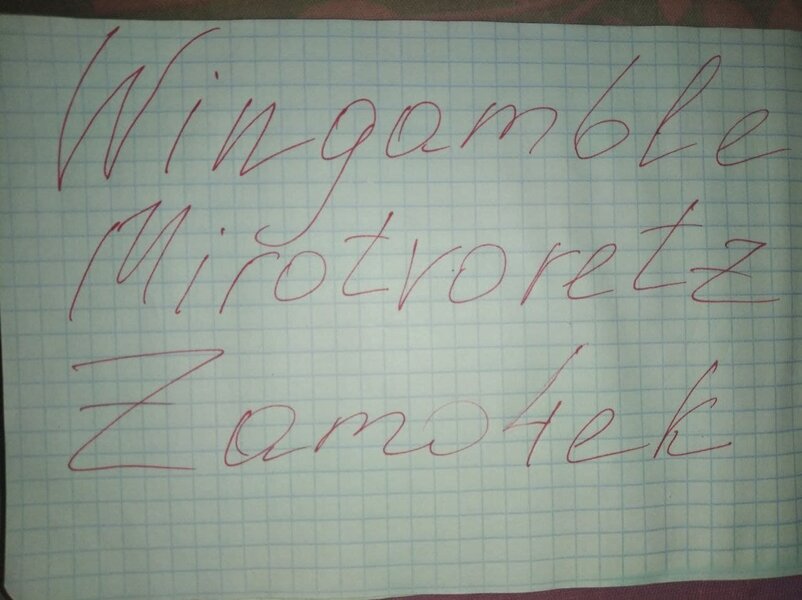 Wingamble
Mirotvoretz
Zamo4ek